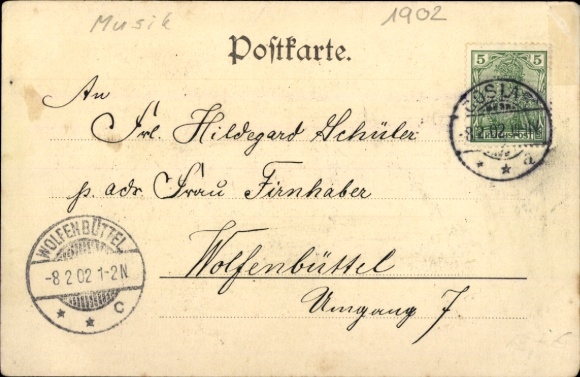 Musik
1902
Postkarte.
5 5
An
Frl. Hildegard Schüler
p. adr. Frau Firnhaber
Wolfenbüttel
Umgang 7
WOLFENBÜTTEL
-8 2 02 1-2 N
* * c
GOSLAR
-8 2 02
* * a